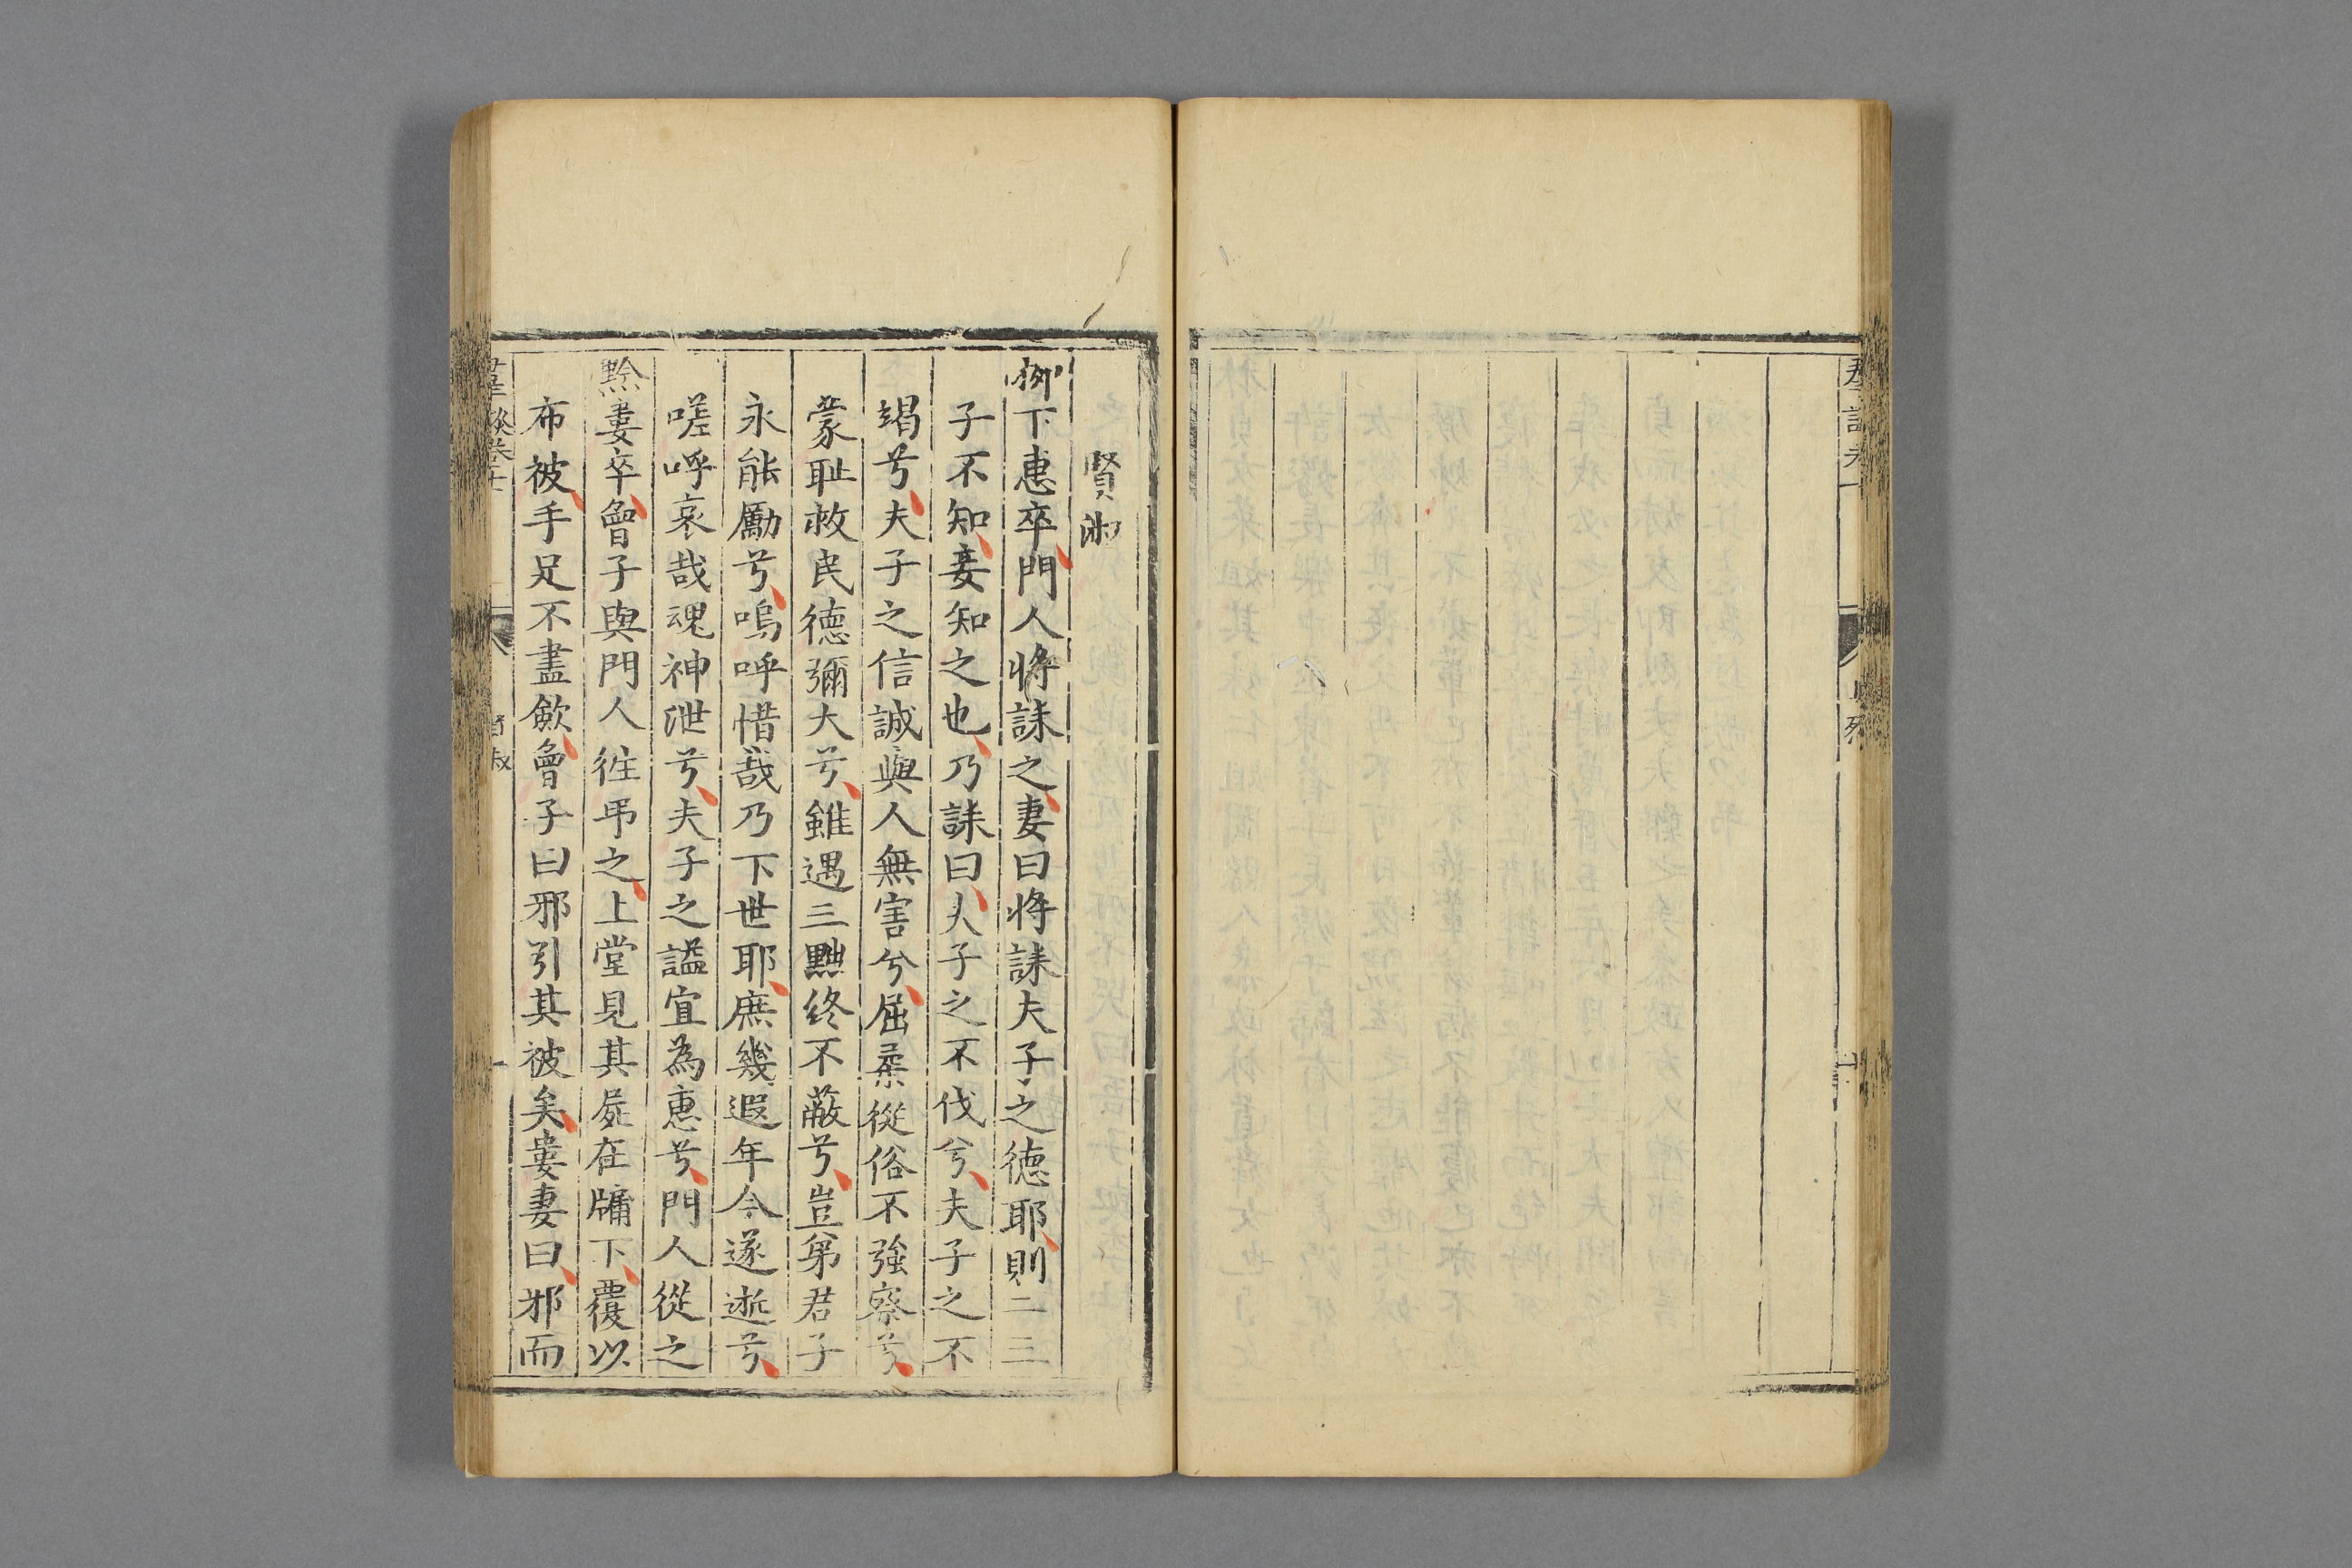 賢淑
柳下惠卒門人將誄之妻曰將誄夫子之德耶則二三
子不知妾知之也乃誄曰夫子之不伐兮夫子之不
竭兮夫子之信誠與人無害兮屈柔從俗不強察兮
蒙恥救民德彌大兮雖遇三黜終不蔽兮豈弟君子
永能勵兮嗚呼惜哉乃下世耶庶幾遐年今遂逝兮
嗟呼哀哉魂神泄兮夫子之謚宜為惠兮門人從之
黔婁卒曾子與門人徃弔之上堂見其屍在牖下覆以
布被手足不盡歛曾子曰邪引其被矣婁妻曰邪而